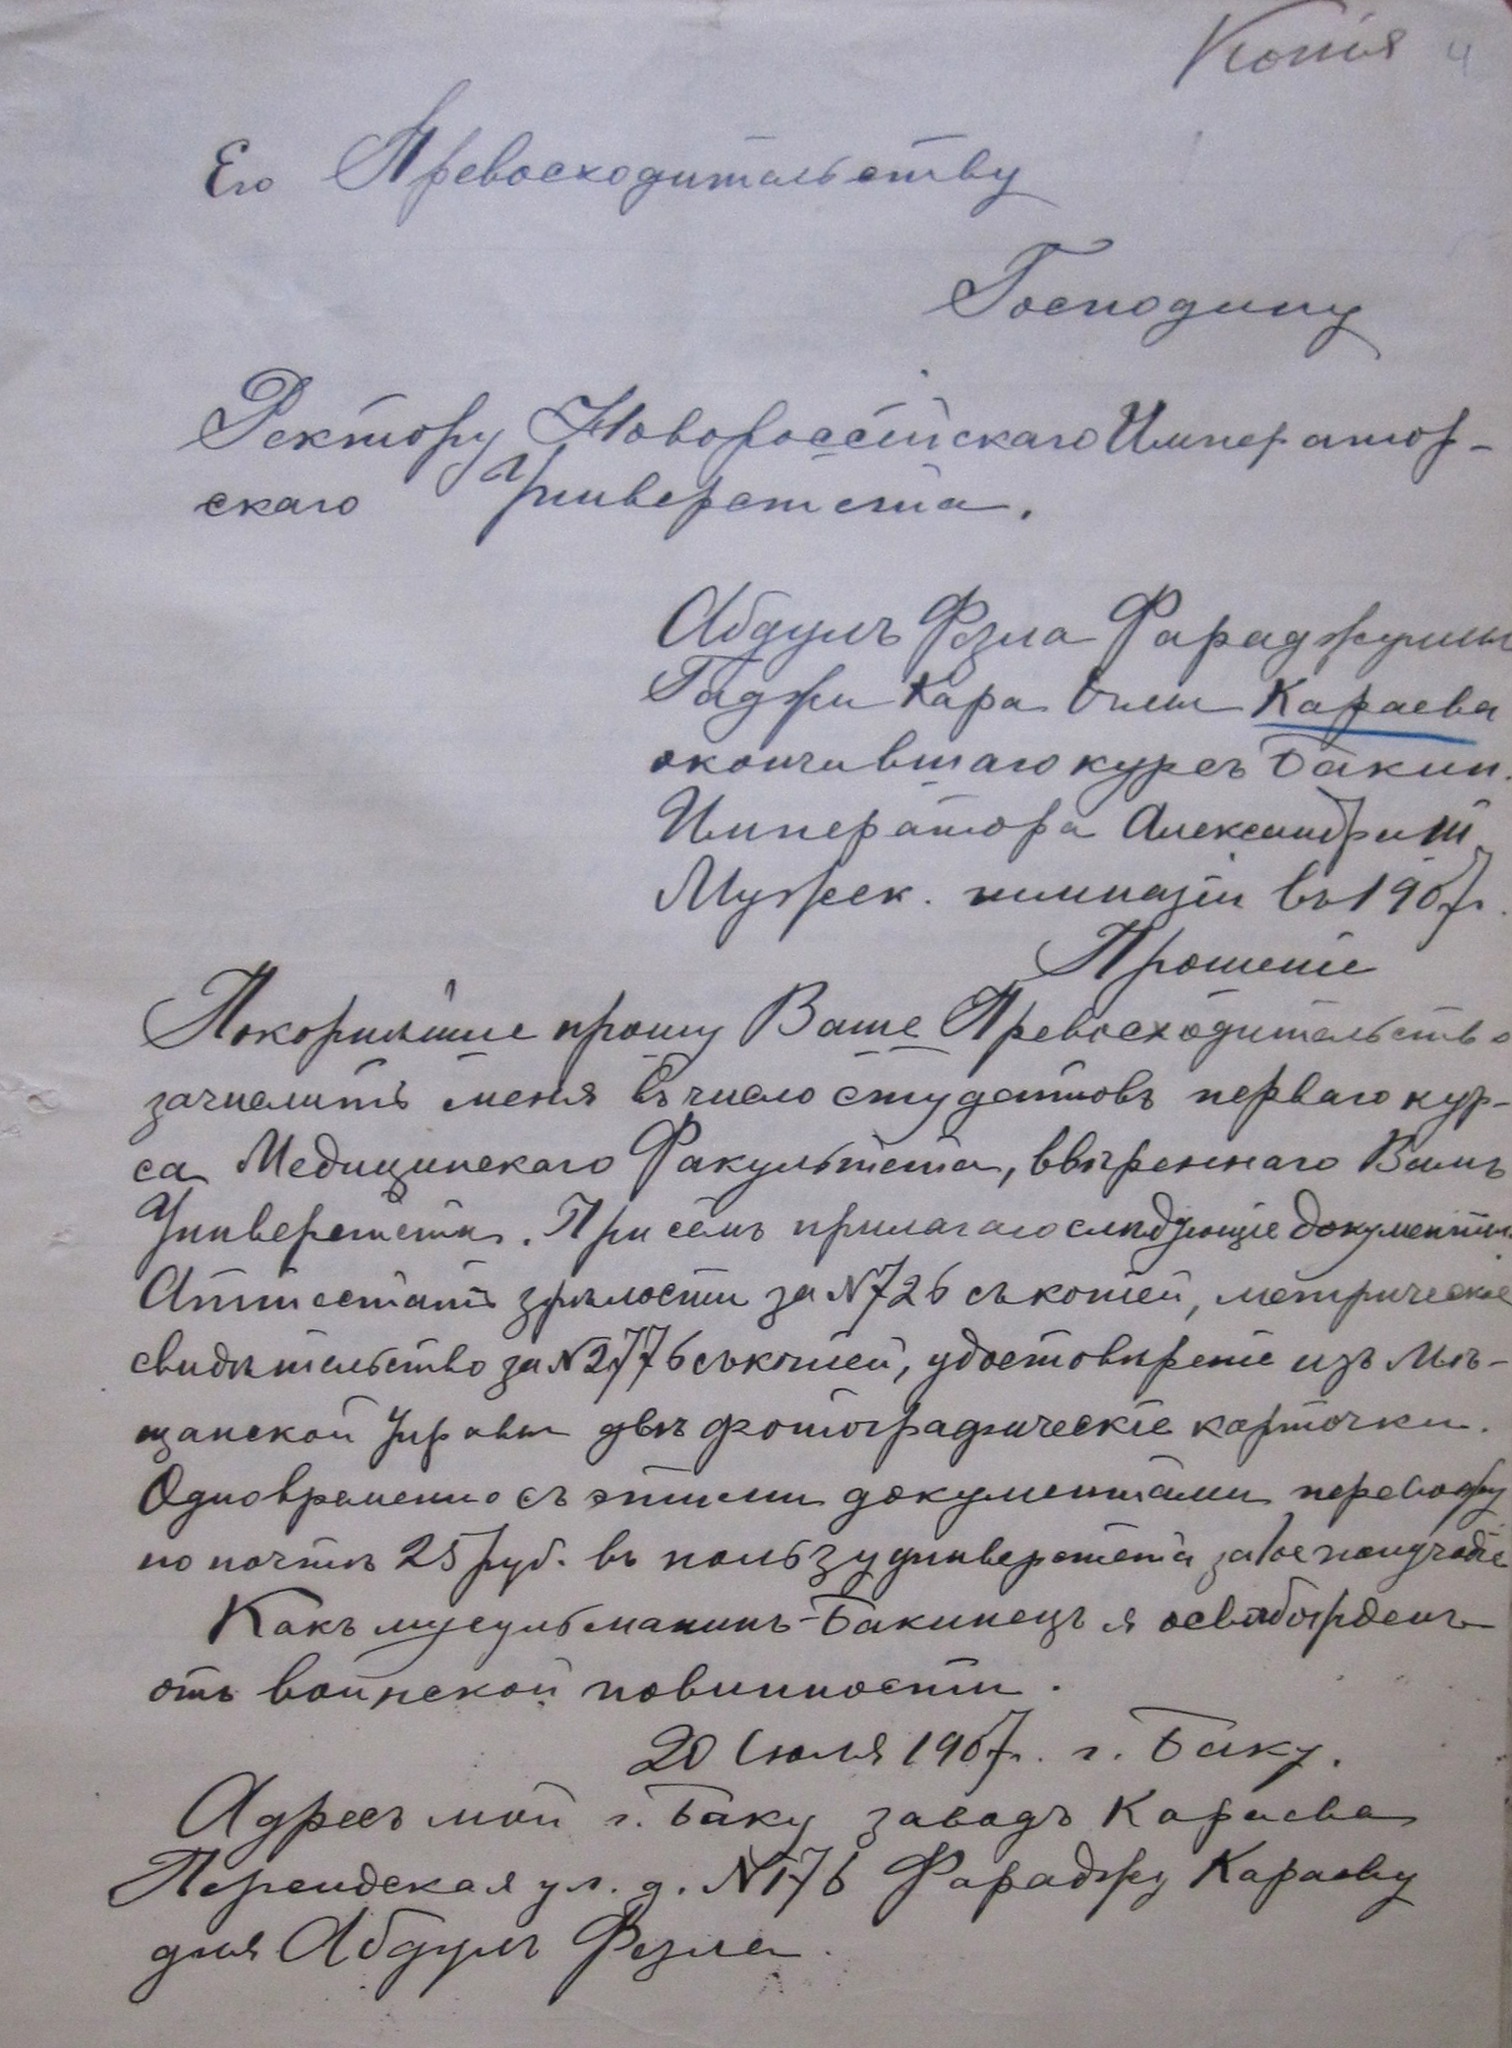 Копія 4
Его Превосходительству
Господину
Ректору Новороссійскаго Император-
скаго Университета.
Абдулъ Фзла Фараджуллы
Гаджи Кара Оглы Караева
окончившаго курсъ Бакин.
Императора Александра III
Мужск. гимназіи въ 1907 г.
Прошеніе
Покорнѣйше прошу Ваше Превосходительство
зачислить меня въ число студентовъ перваго кур-
са Медицинскаго Факультета, ввѣреннаго Вамъ
Университета. При семъ прилагаю слѣдующіе документы:
Аттестатъ зрѣлости за № 726 съ копіей, метрическое
свидѣтельство за № 2776 съ копіей, удостовѣреніе изъ Мѣ-
щанской Управы двѣ фотографическіе карточки.
Одновременно съ этими документами перевожу
по почтѣ 25 руб. въ пользу университета за
Какъ мусульманинъ-Бакинецъ я освобожденъ
отъ воинской повинности.
20 Іюля 1907 г. г. Баку.
Адресъ мой г. Баку заводъ Караева
ул. д. № 176 Фараджу Караеву
для Абдулъ Фзла.